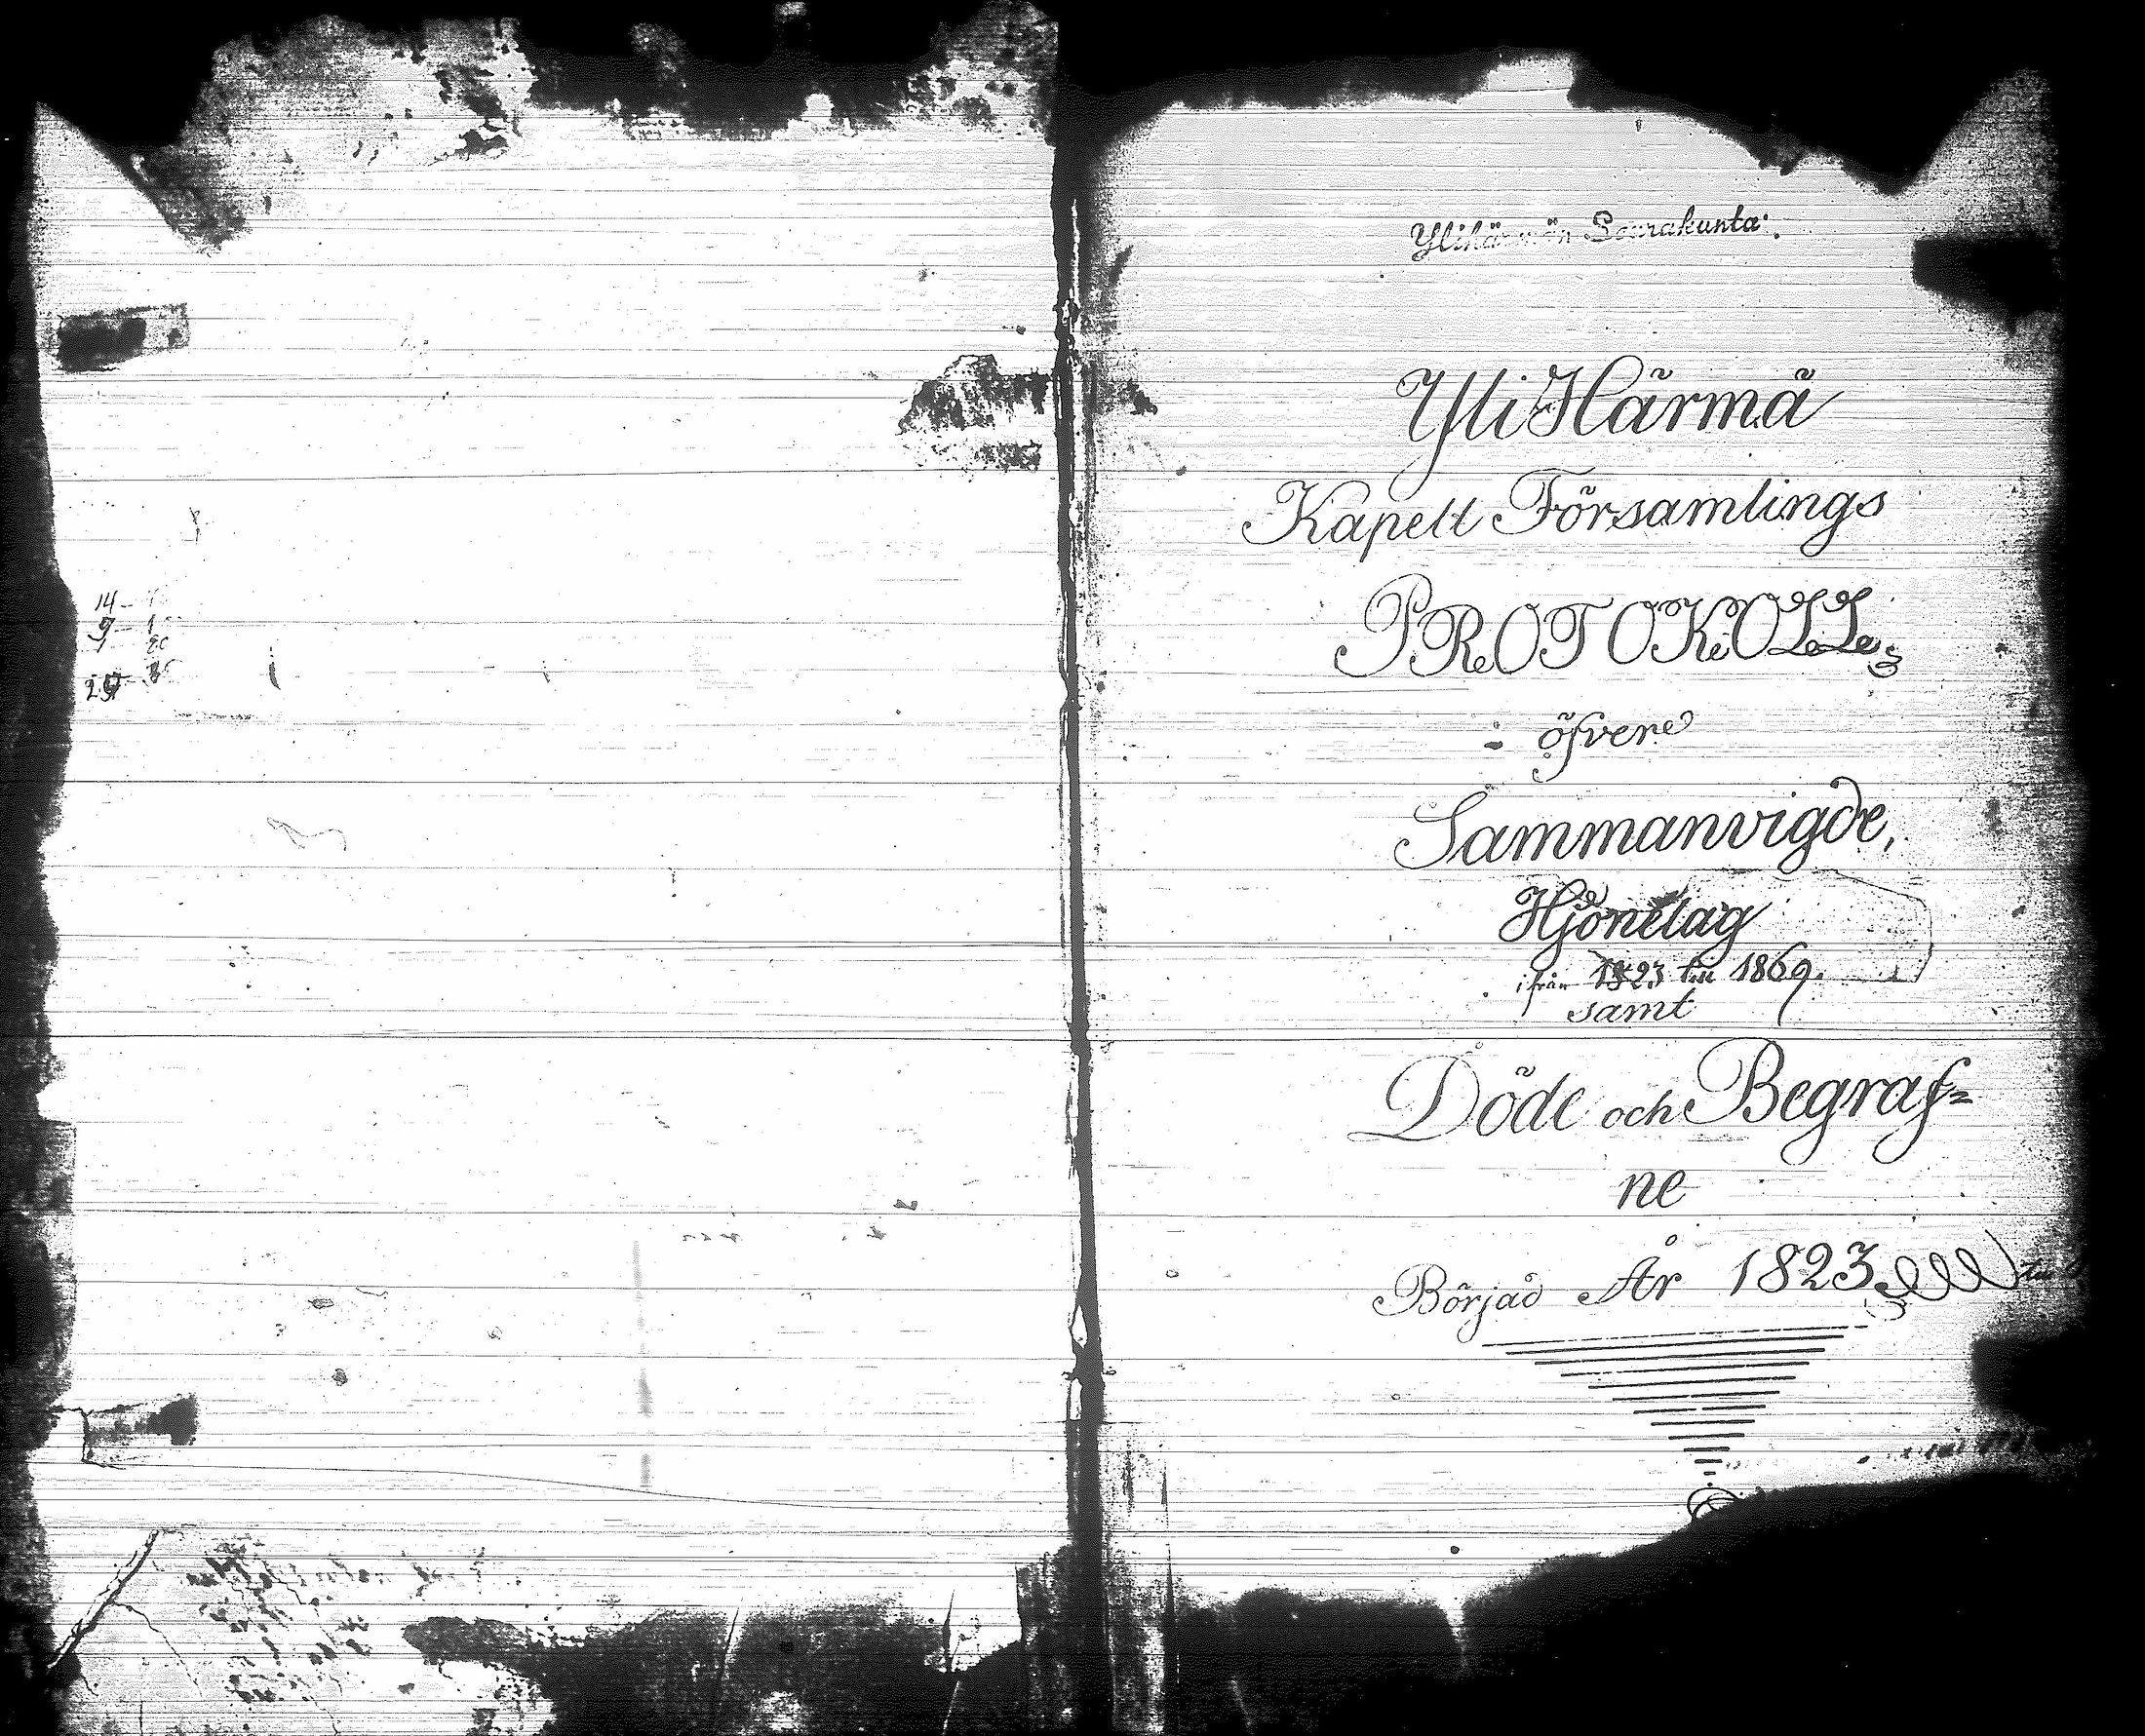 14
9
29
Ylihärmän Seurakunta.
Yli Härmä
Kapell Församlings
PROTOKOLL
öfver
Sammanvigde,
Hjonelag
ifrån 1823 till 1869.
samt
Döde och Begraf=
ne
Börjad År 1823